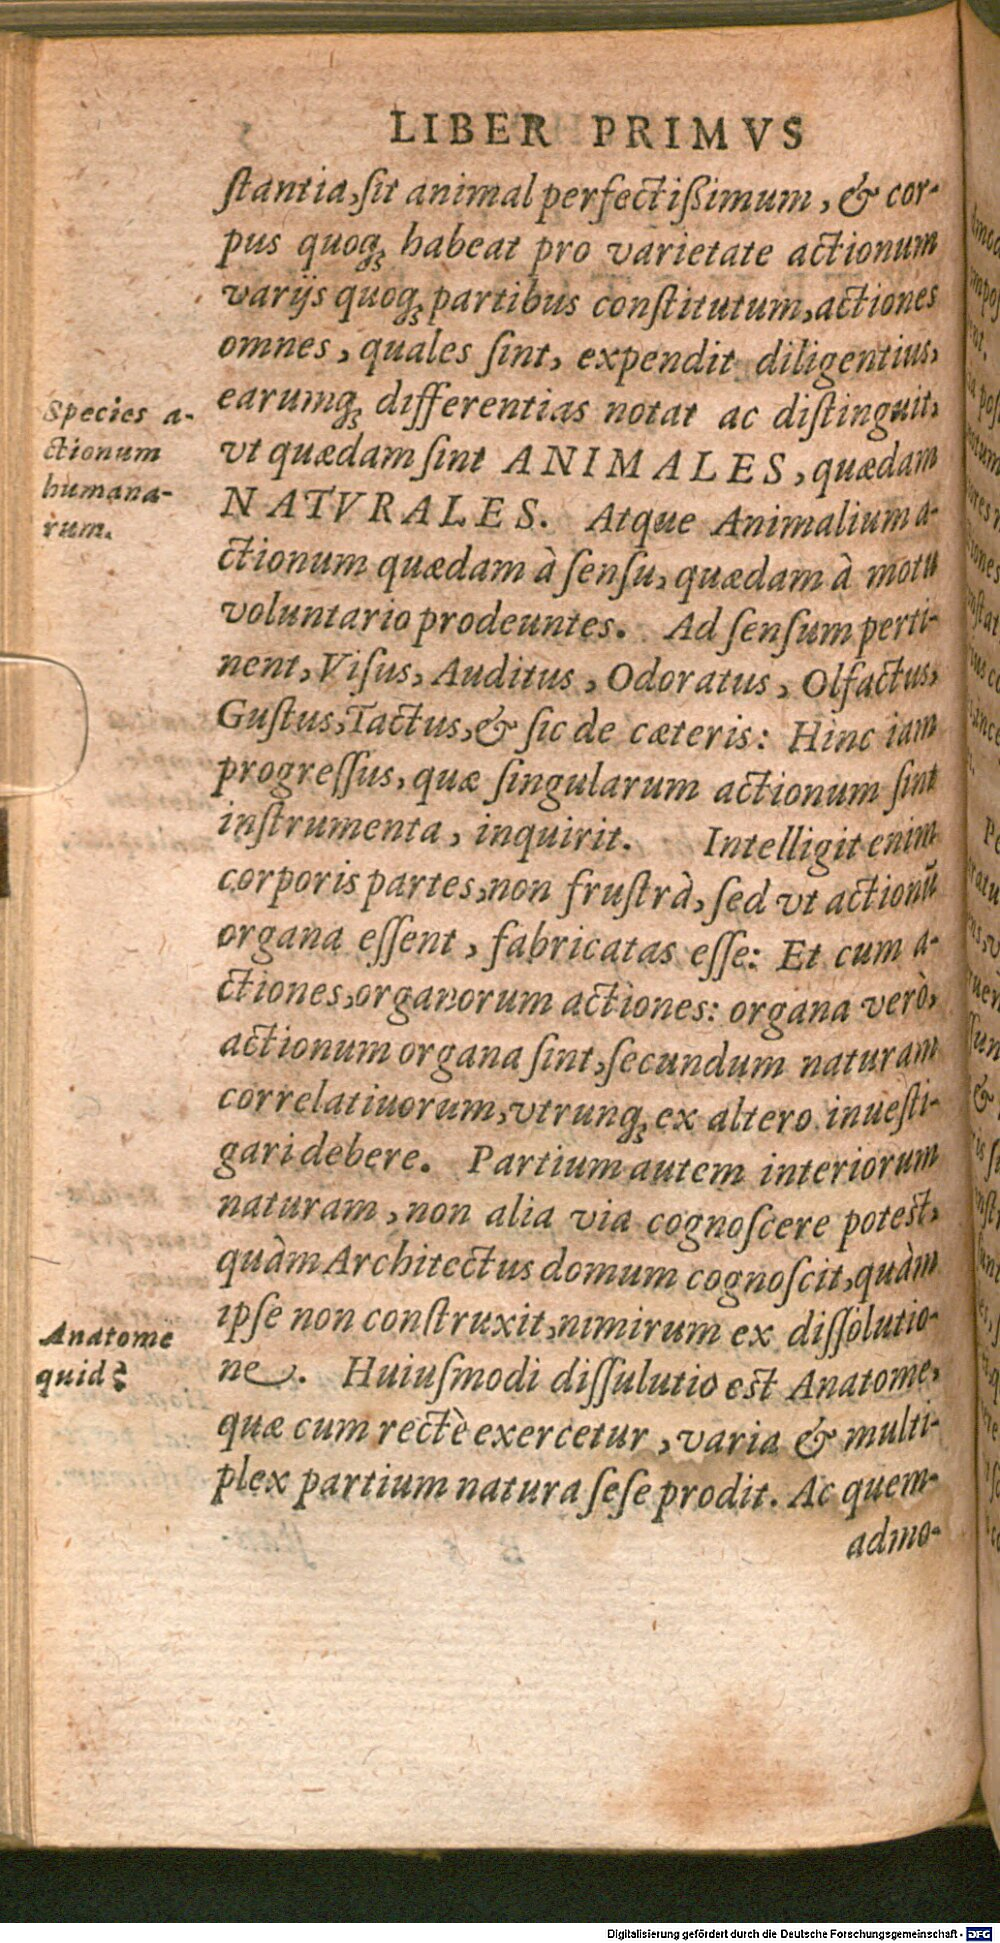 LIBER PRIMVS
ſtantia, ſit animal perfectißimum, & cor-
pus quoq; habeat pro varietate actionum
varijs quoq; partibus conſtitutum, actiones
omnes, quales ſint, expendit diligentius,
earumq; differentias notat ac diſtinguit,
vt quædam ſint ANIMALES, quædam
NATVRALES. Atque Animalium a-
ctionum quædam à ſenſu, quædam à motu
voluntario prodeuntes. Ad ſenſum perti-
nent, Viſus, Auditus, Odoratus, Olfactus,
Guſtus, Tactus, & ſic de cæteris: Hinc iam
progreſſus, quæ ſingularum actionum ſint
inſtrumenta, inquirit. Intelligit enim
corporis partes, non fruſtrà, ſed vt actionũ
organa eſſent, fabricatas eſſe: Et cum a-
ctiones, organorum actiones: organa verò,
actionum organa ſint, ſecundum naturam
correlatiuorum, vtrunq; ex altero inueſti-
gari debere. Partium autem interiorum
naturam, non alia via cognoſcere poteſt,
quàm Architectus domum cognoſcit, quàm
ipſe non conſtruxit, nimirum ex diſſolutio-
ne. Huiuſmodi diſſulutio eſt Anatome,
quæ cum rectè exercetur, varia & multi-
plex partium natura ſeſe prodit. Ac quem-
admo-
Species a-
ctionum
humana-
rum.
Anatome
quid?
Digitalisierung gefördert durch die Deutsche Forschungsgemeinschaft - DFG